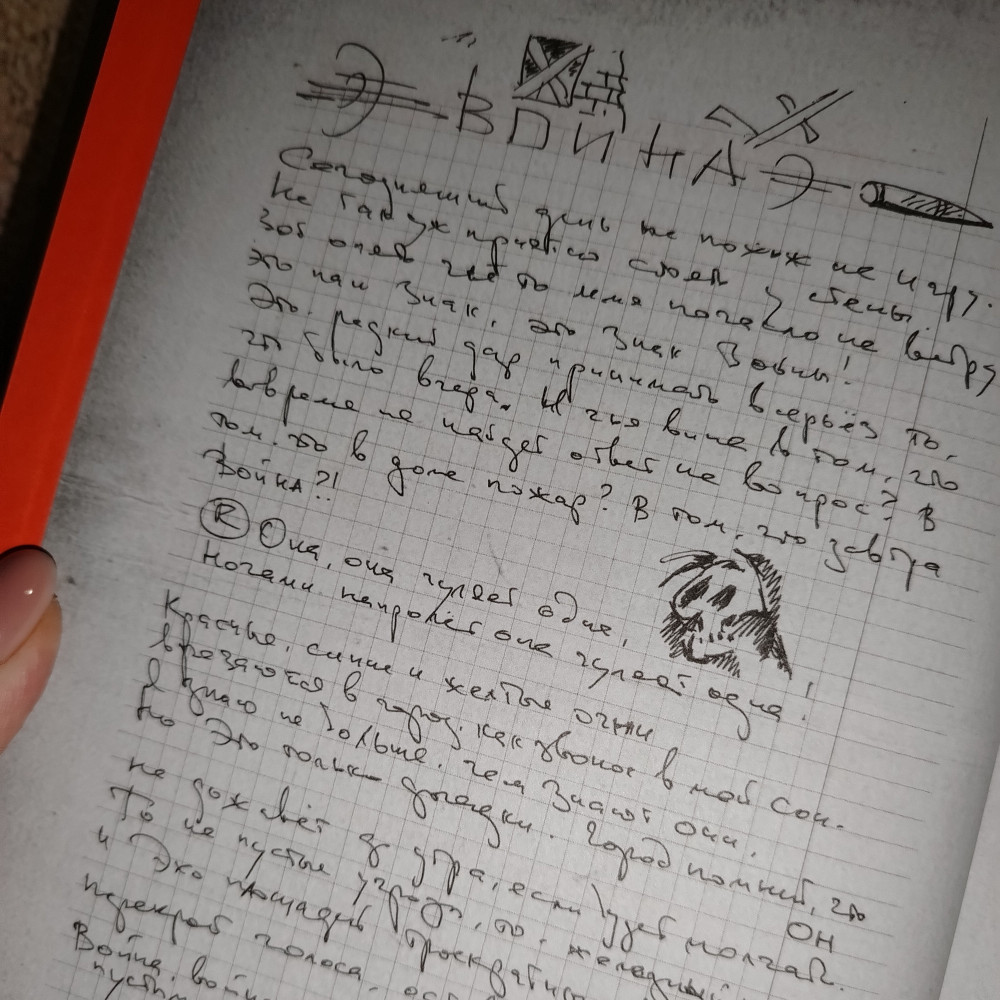 Э ВОЙНА Э
Сегодняшний день не похож на игру.
Не так уж приятно стоять у стены.
Зов опять где то меня погнало на ветру
это наш знак, это знак Войны!
Это редкий дар принимать всерьёз то,
что было вчера. И чья вина в том, что
вовремя не найдет ответ на вопрос? В
том, что в доме пожар? В том, что завтра
Война?!
Ⓡ Она, она гуляет одна,
Ночами напролёт она гуляет одна!
Красные, синие и желтые огни
врезаются в город, как звонок в мой сон.
Я знаю не больше, чем знают они,
Но это только догадки. Город помнит, что
он
не доживёт до утра, если будет молчать.
То не пустые угрозы, то, железный
и Эхо площадей троекратно
перекроет голоса,
Война, война